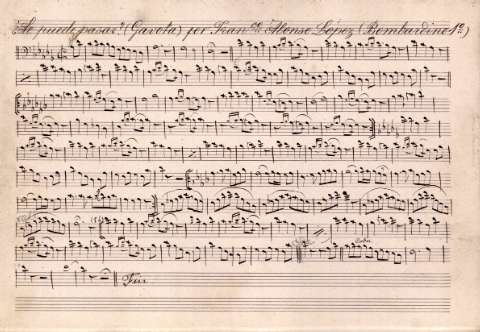 ¿Se puede pasar? (Gavota) por Fran.co Alonso López (Bombardino 1º)
Fin